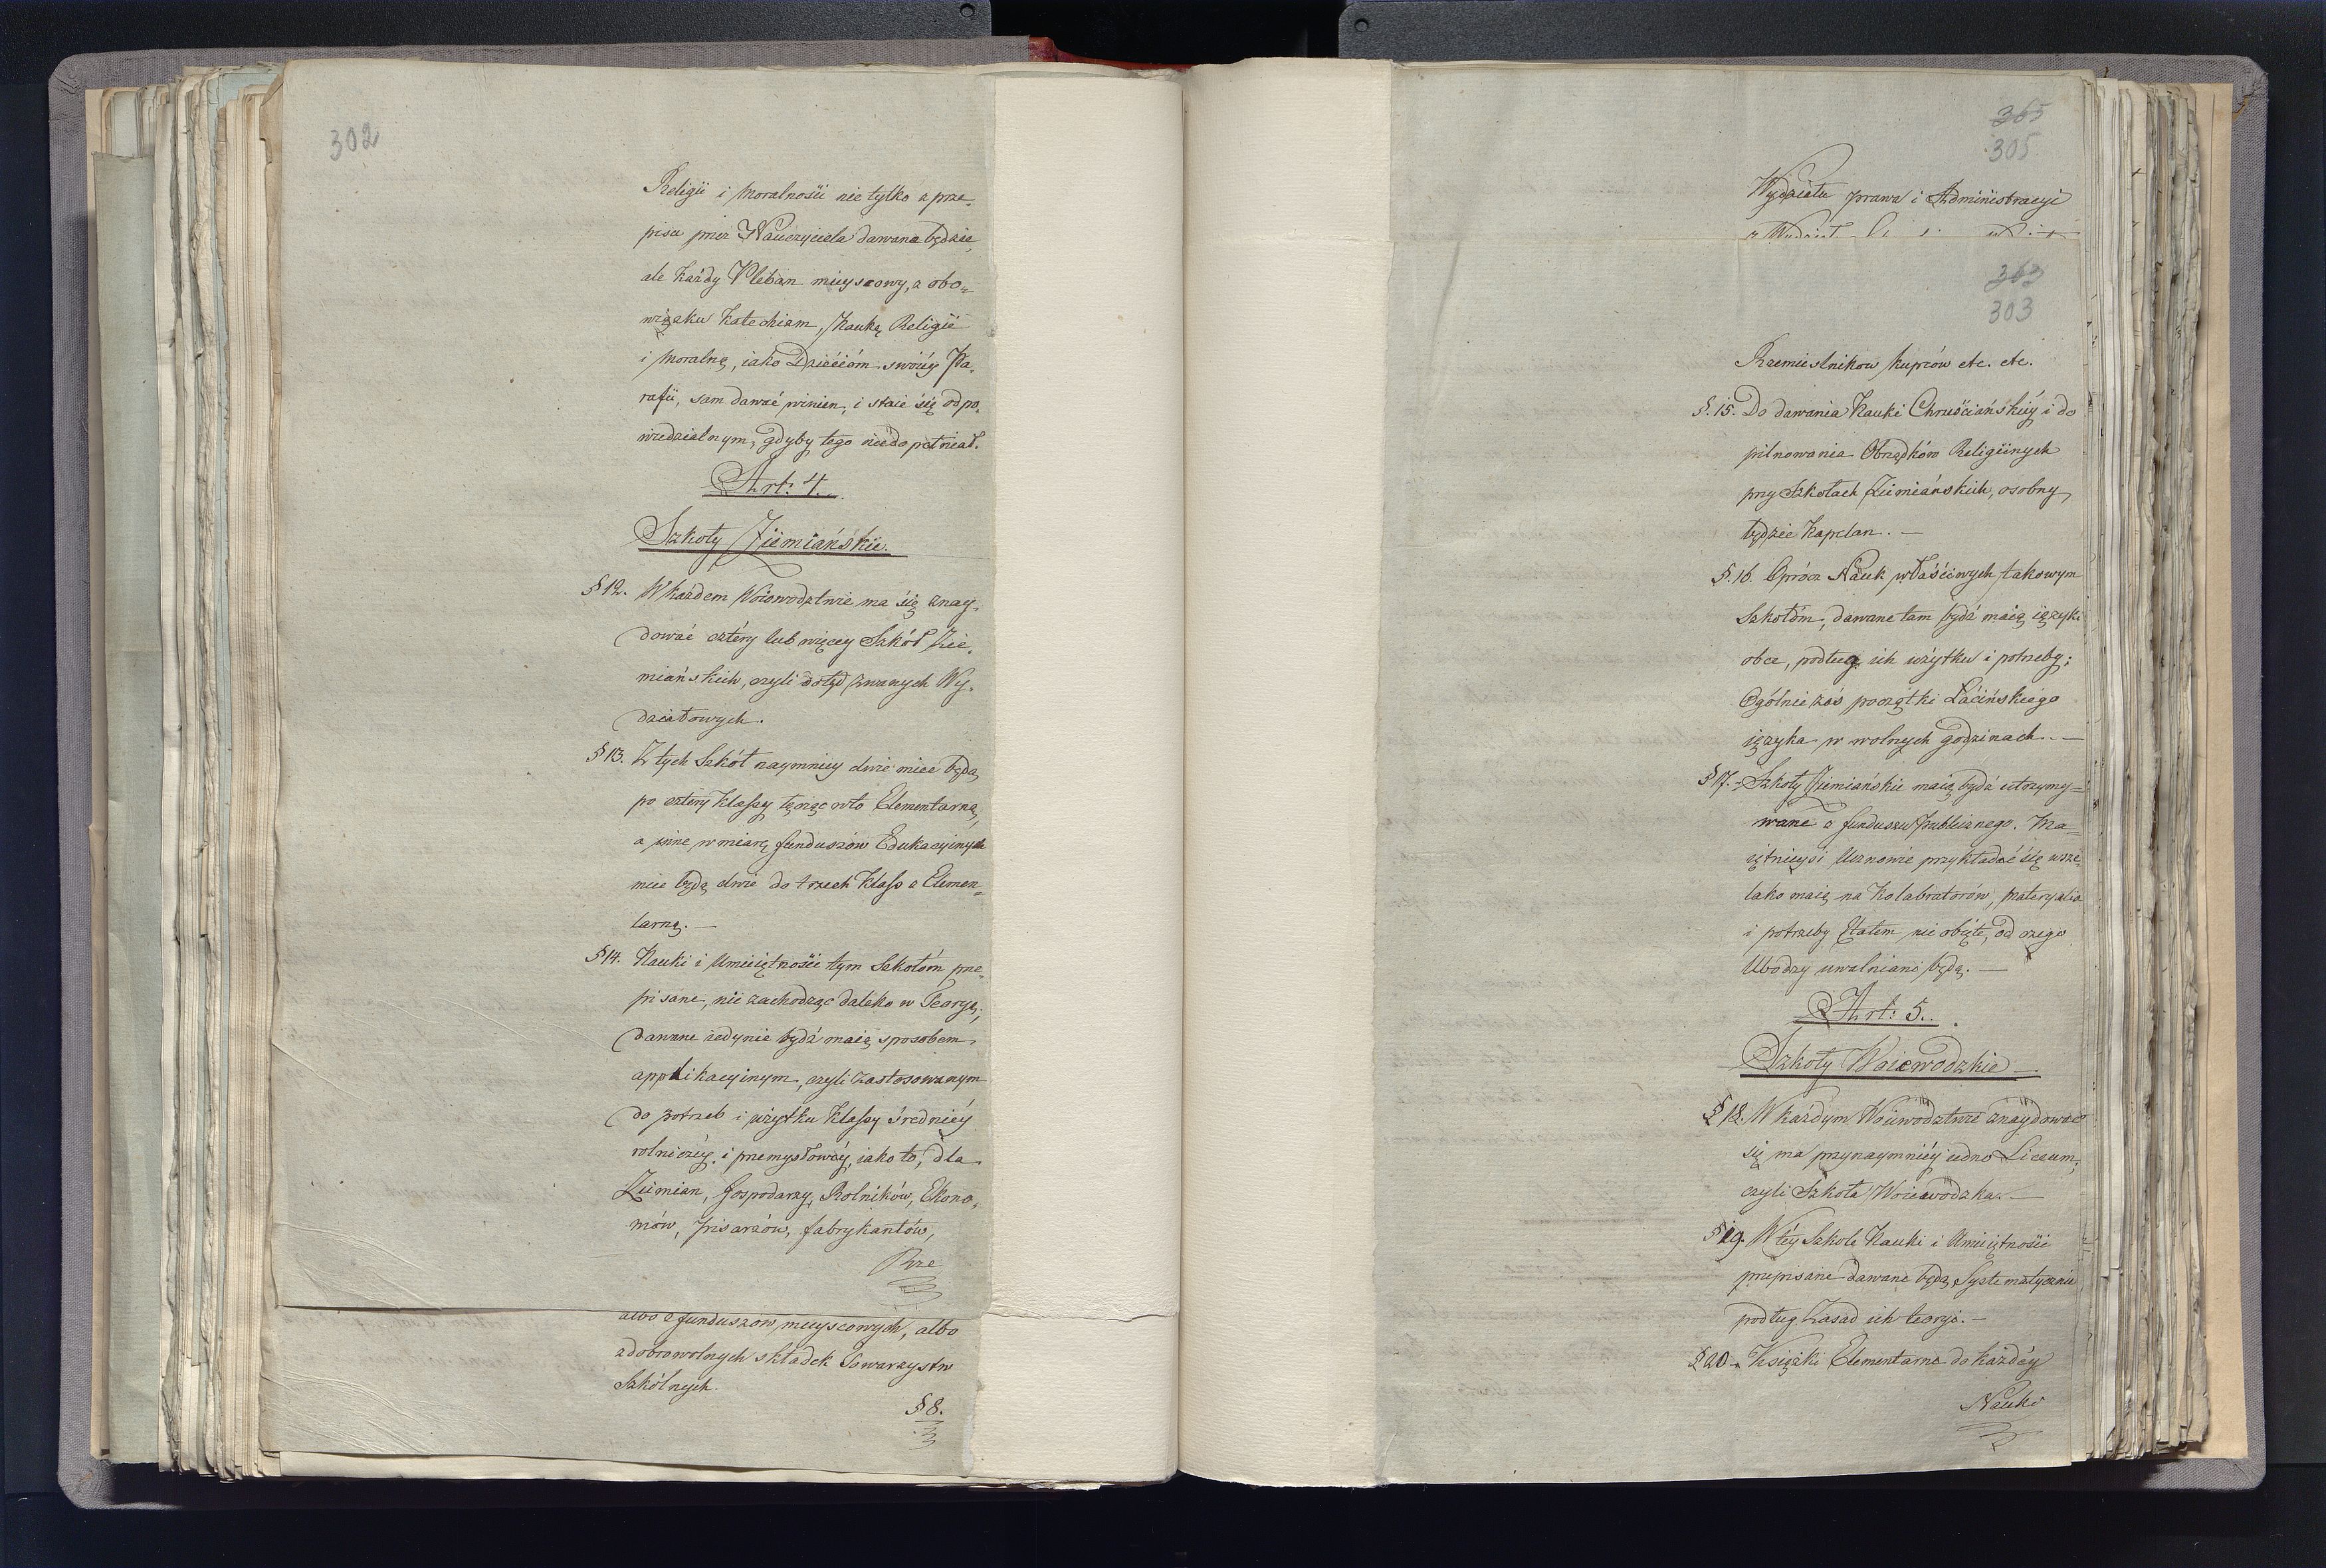 302
Religii i Moralności nie tylko z prze-
pisu przez Nauczyciela dawana będzie,
ale każdy Pleban mieyscowy, z obo-
wiązku Katechizm, Naukę Religii
i Moralną, iako Dziecióm swóiéy Pa-
rafii, sam dawać winien, i staie się odpo-
wiedzialnym, gdyby tego niedopełniał.
Art: 4.
Szkoły Ziemiańskie.
§ 12. W każdem Woiewodztwie ma się znay-
dować cztéry lub więcey Szkół Zie-
miańskich, czyli dotąd zwanych Wy-
działowych.
§ 13. Z tych Szkół naymniey dwie miec będą
po cztery Klassy łącząc w to Elementarną,
a inne w miarę funduszów Edukacyinych
miec będą dwie do trzech Klass z Elemen-
tarną. —
§ 14. Nauki i Umieiętności tym Szkołóm prze-
pisane, nie zachodząc daleko w Teoryą,
dawane iedynie bydź maią sposobem
applikacyinym, czyli zastosowanym
do potrzeb i użytku Klassy średniéy
rolniczéy i przemysłowéy, iako to, dla
Ziemian, Gospodarzy, Rolników, Ekono-
mów, Pisarzów, fabrykantów,
Rze
albo z funduszów mieyscowych, albo
z dobrowolnych składek Towarzystw
Szkólnych.
§ 8.
365
305
Wydziału Prawa i Administracyi
363
303
Rzemieslnikow kupców etc. etc.
§. 15. Do dawania Nauki Chrześciańskiéy i do
pilnowania Obrządków Religiinych
przy Szkołach Ziemiańskich, osobny
będzie Kapelan. —
§. 16. Oprócz Nauk właściwych takowym
Szkołóm, dawane tam bydź maią ięzyki
obce, podług ich użytku i potrzeby;
Ogólnie zaś początki Łacińskiego
ięzyka w wolnych godzinach. —
§ 17. Szkoły Ziemiańskie maią bydź utrzymy-
wane z funduszu Publicznego. Ma-
iętnieysi Uczniowie przykładać się wsze-
lako maią na Kolabratorów, materyalia
i potrzeby Etatem nie obięte, od czego
Ubodzy uwalniani będą. —
Art: 5.
Szkoły Woiewodzkie
§ 18. W każdym Woiewodztwie znaydować
się ma przynaymniéy iedno Liceum,
czyli Szkoła Woiewodzka. —
§ 19. W téy Szkole Nauki i Umieiętności
przepisane dawane będą Systematycznie
podług Zasad ich teoryi. —
§ 20. Książki Elementarne do każdéy
Nauki